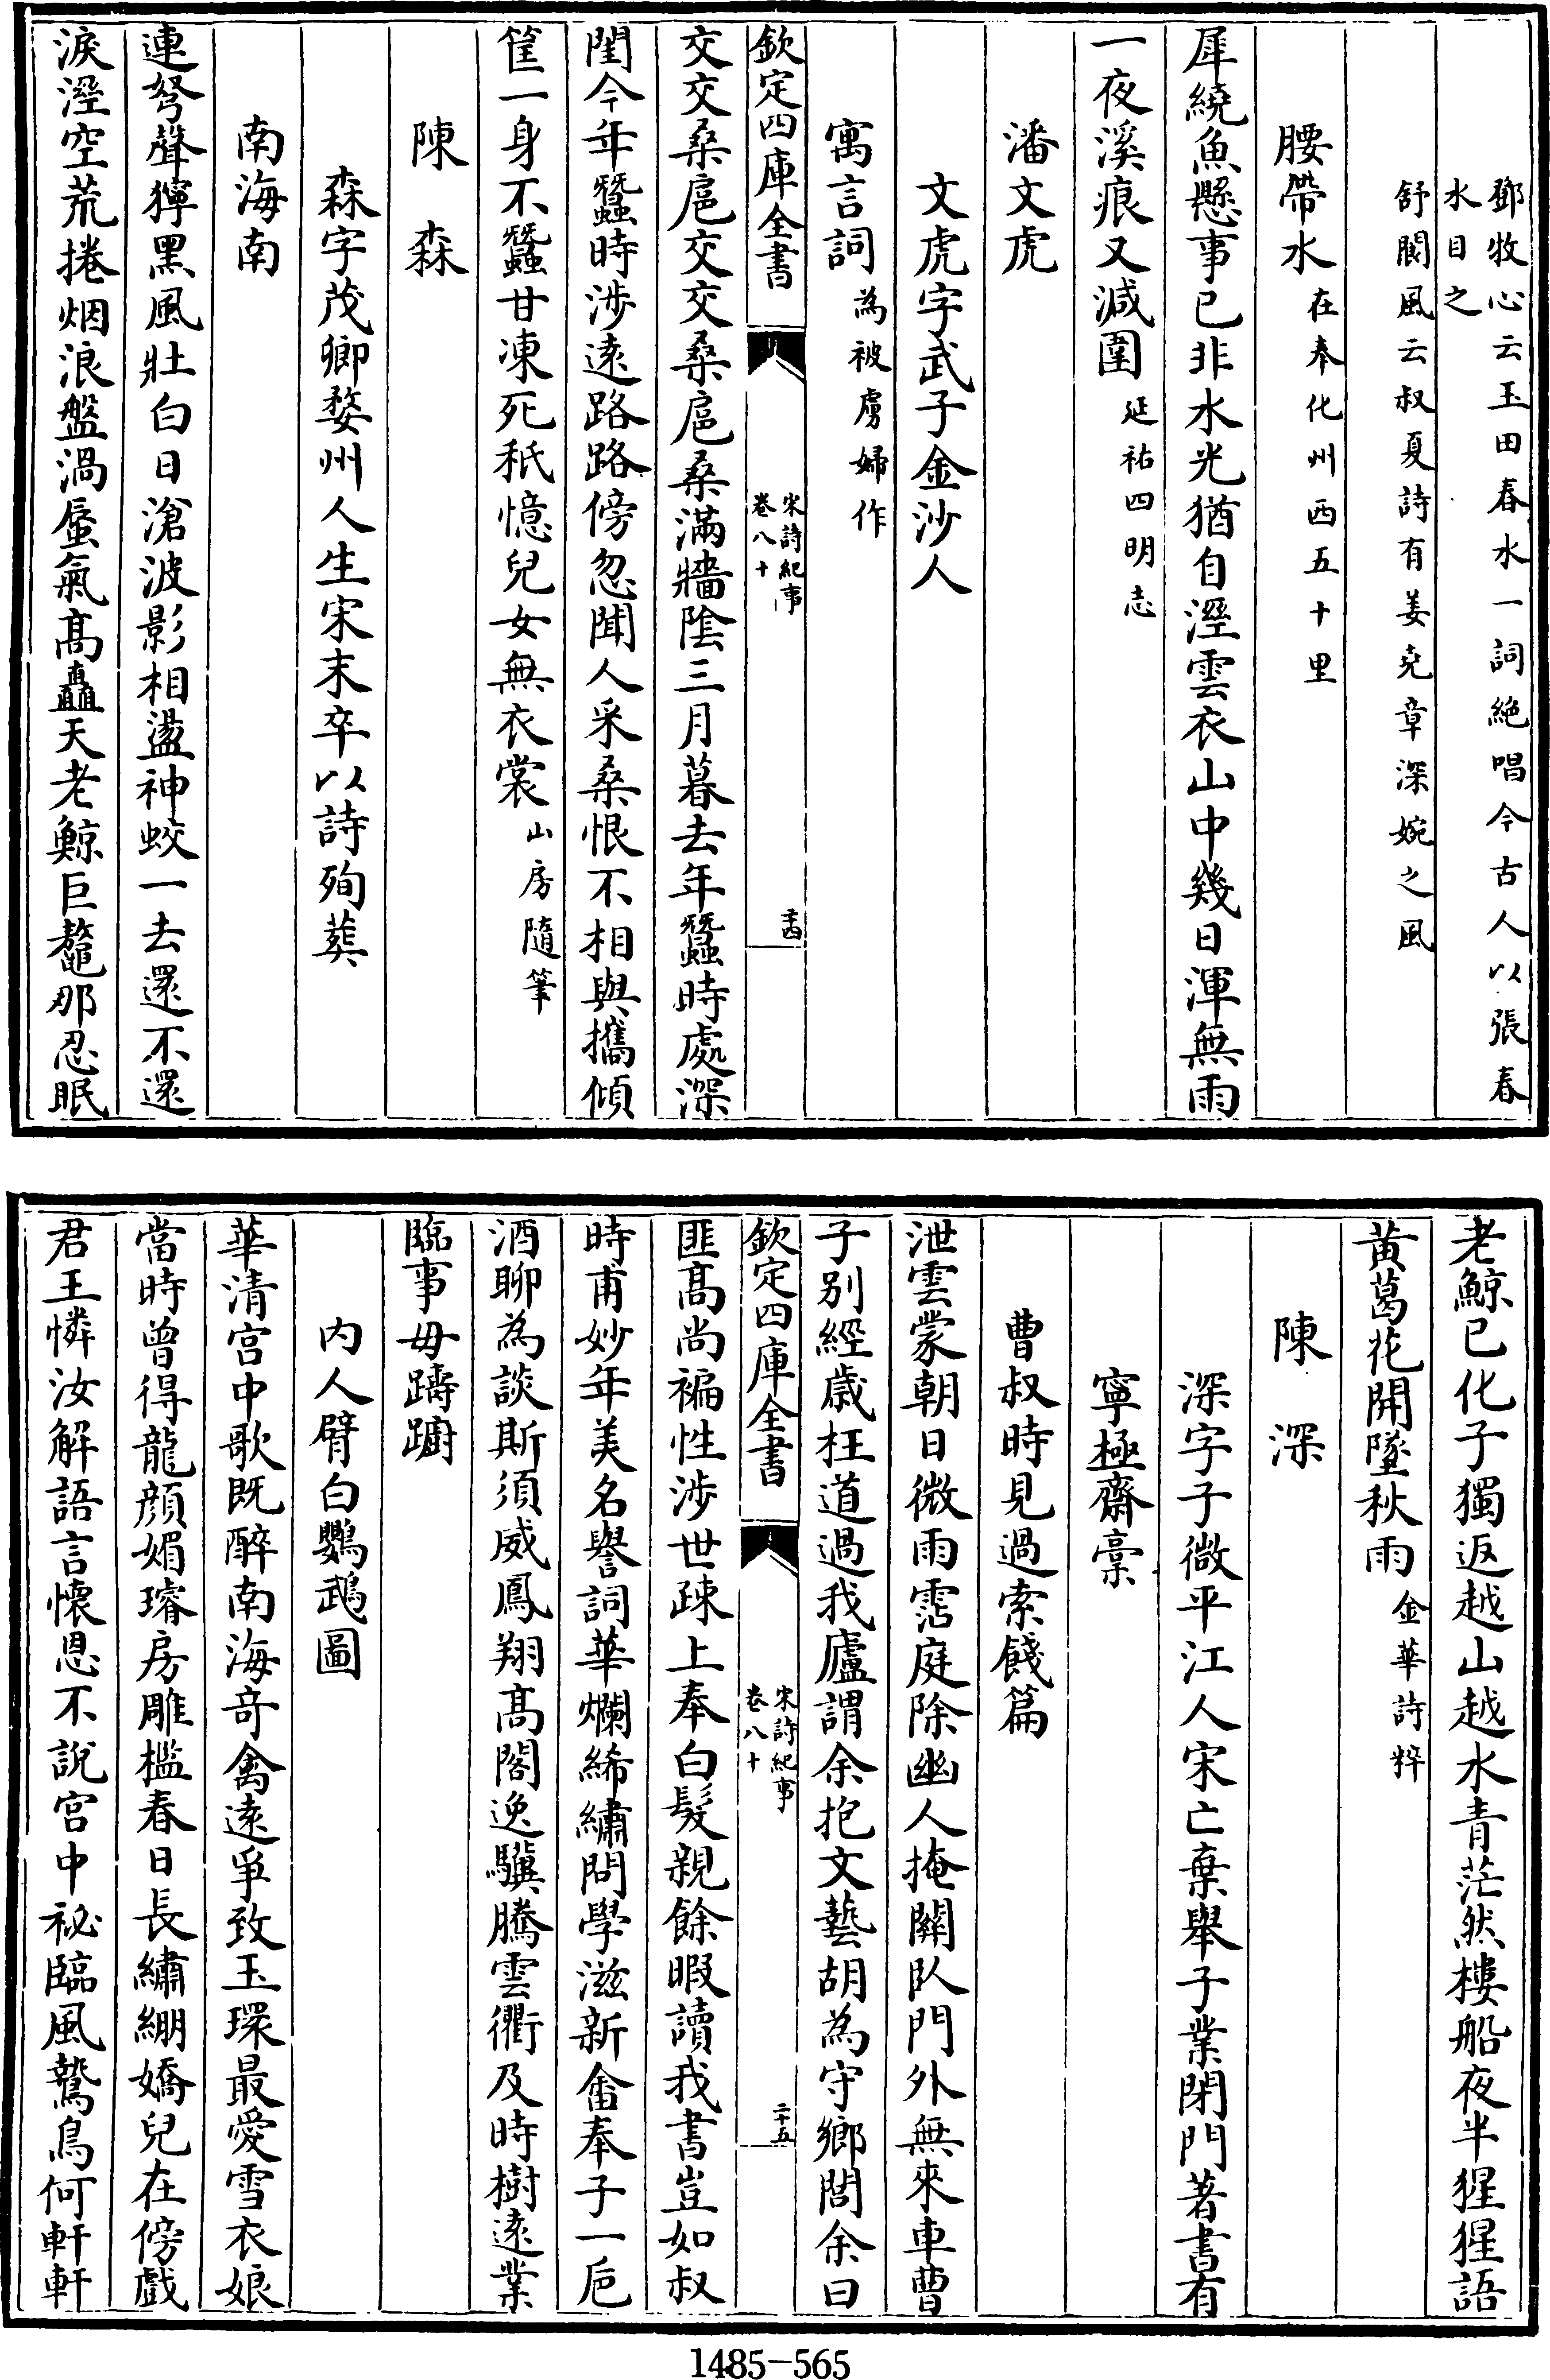 鄧牧心云玉田春水一詞絶唱今古人以張春
水目之
舒閬風云叔夏詩有姜堯章深婉之風
腰帶水在奉化州西五十里
犀繞魚懸事已非水光猶自溼雲衣山中幾日渾無雨
一夜溪痕又減圍延祐四明志
潘文虎
文虎字武子金沙人
寓言詞為被虜婦作
欽定四庫全書
宋詩紀事
卷八十
二十四
交交桑扈交交桑扈桑滿牆陰三月暮去年蠶時處深
閨今年蠶時涉逺路路傍忽聞人采桑恨不相與攜傾
筐一身不蠶甘凍死秖憶兒女無衣裳山房隨筆
陳森
森字茂卿婺州人生宋末卒以詩殉葬
南海南
連弩聲獰黑風壯白日滄波影相盪神蛟一去還不還
淚溼空荒捲烟浪盤渦蜃氣髙矗天老鯨巨鼇那忍眠
老鯨已化子獨返越山越水青茫然樓船夜半猩猩語
黄葛花開墜秋雨金華詩粹
陳深
深字子微平江人宋亡棄舉子業閉門著書有
寧極齋稾
曹叔時見過索餞篇
泄雲蒙朝日微雨霑庭除幽人掩關臥門外無來車曹
子别經歳枉道過我廬謂余抱文藝胡為守鄉閭余曰
欽定四庫全書
宋詩紀事
卷八十
二十五
匪髙尚褊性涉世疎上奉白髮親餘暇讀我書豈如叔
時甫妙年美名譽詞華爛絺繡問學滋新畬奉子一巵
酒聊為談斯須威鳳翔髙閣逸驥騰雲衢及時樹逺業
臨事毋躊躕
内人臂白鸚鵡圖
華清宫中歌既醉南海竒禽逺爭致玉環最愛雪衣娘
當時曾得龍顔媚璿房雕檻春日長繡綳嬌兒在傍戲
君王憐汝解語言懷恩不說宫中祕臨風鷙鳥何軒軒
1485-565